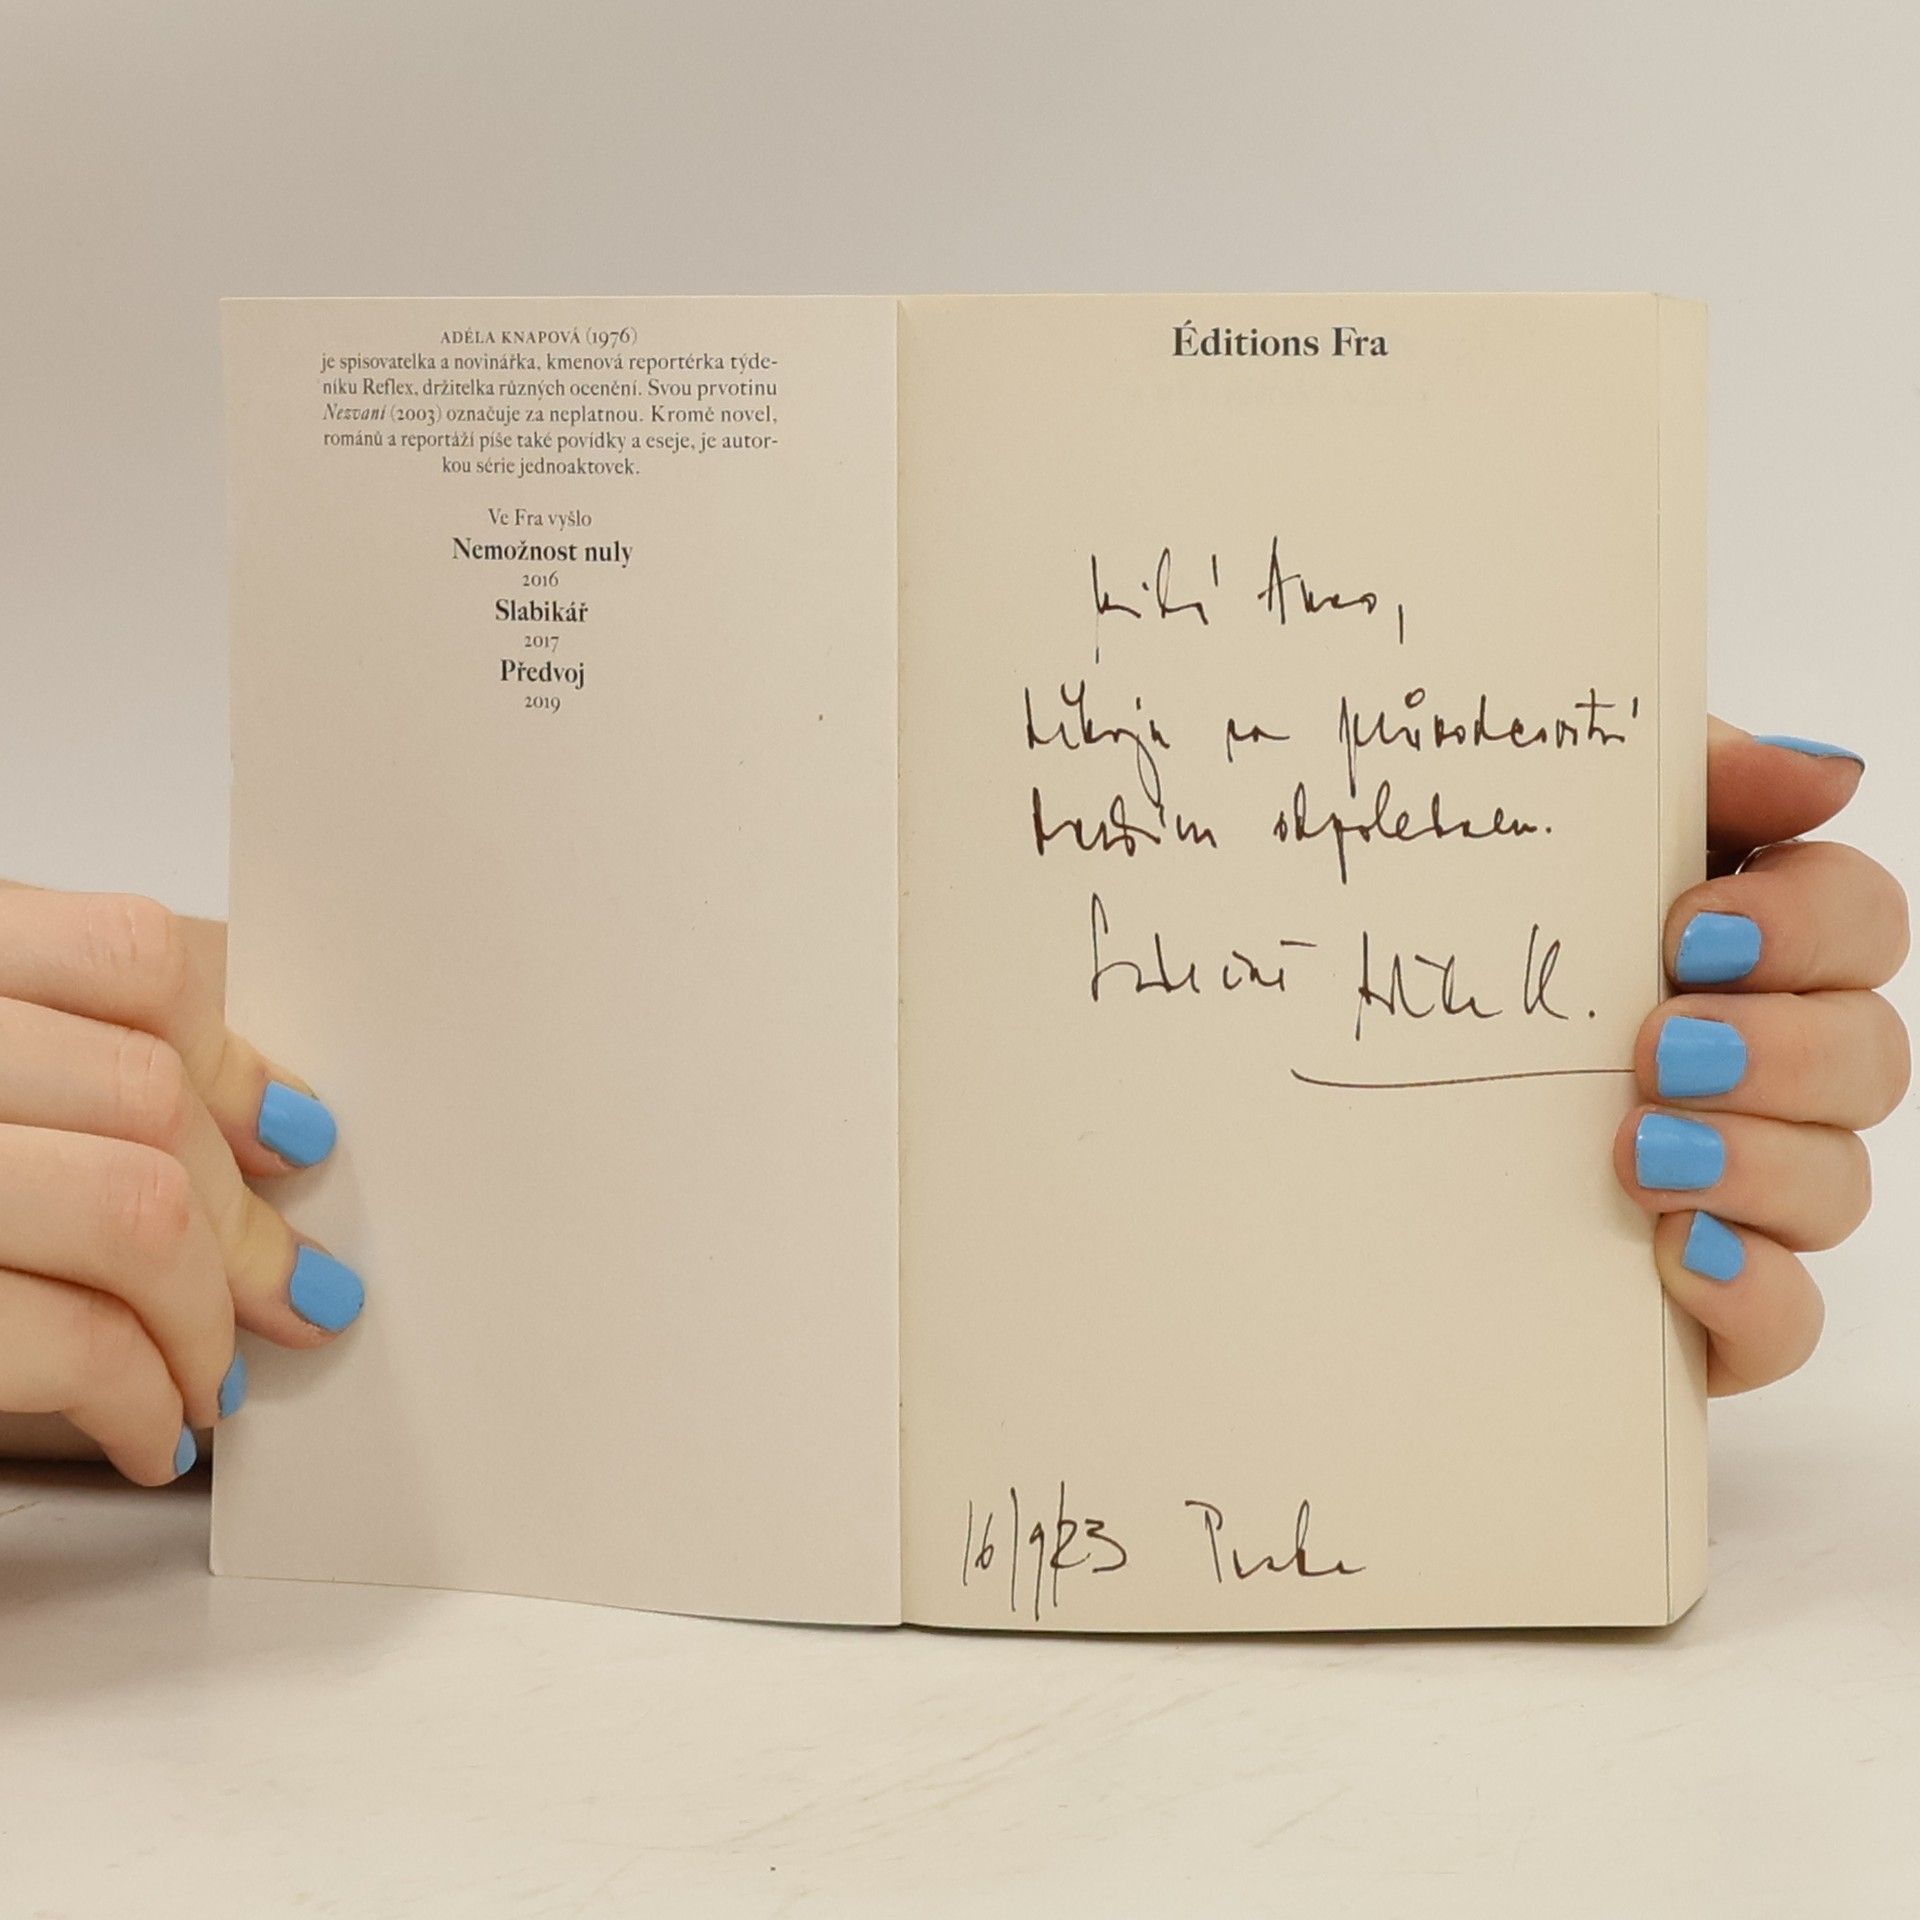 ADÉLA KNAPOVÁ (1976)
je spisovatelka a novinářka, kmenová reportérka týde-
níku Reflex, držitelka různých ocenění. Svou prvotinu
Nezvaní (2003) označuje za neplatnou. Kromě novel,
románů a reportáží píše také povídky a eseje, je autor-
kou série jednoaktovek.
Ve Fra vyšlo
Nemožnost nuly
2016
Slabikář
2017
Předvoj
2019
Éditions Fra
Milá Anno,
děkuju za průvodcovství
dnešním odpolednem.
Srdečně Adéla K.
16/9/23 Praha